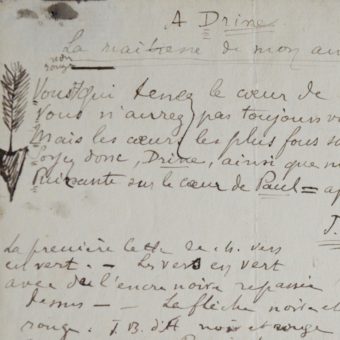 A Drine
La maitresse de mon am
non
rouge
Vous qui tenez le cœur de
Vous n'aurez pas toujours vi
Mais les cœurs les plus fous so
Soyez donc, Drine, ainsi que m
Puissante sur le cœur de Paul = ap
J.
La première lettre de ch. vers
est vert. – Les vers en vert
avec de l'encre noire repassée
dessus – – La flèche noire et
rouge. J. B. d'A noir et rouge